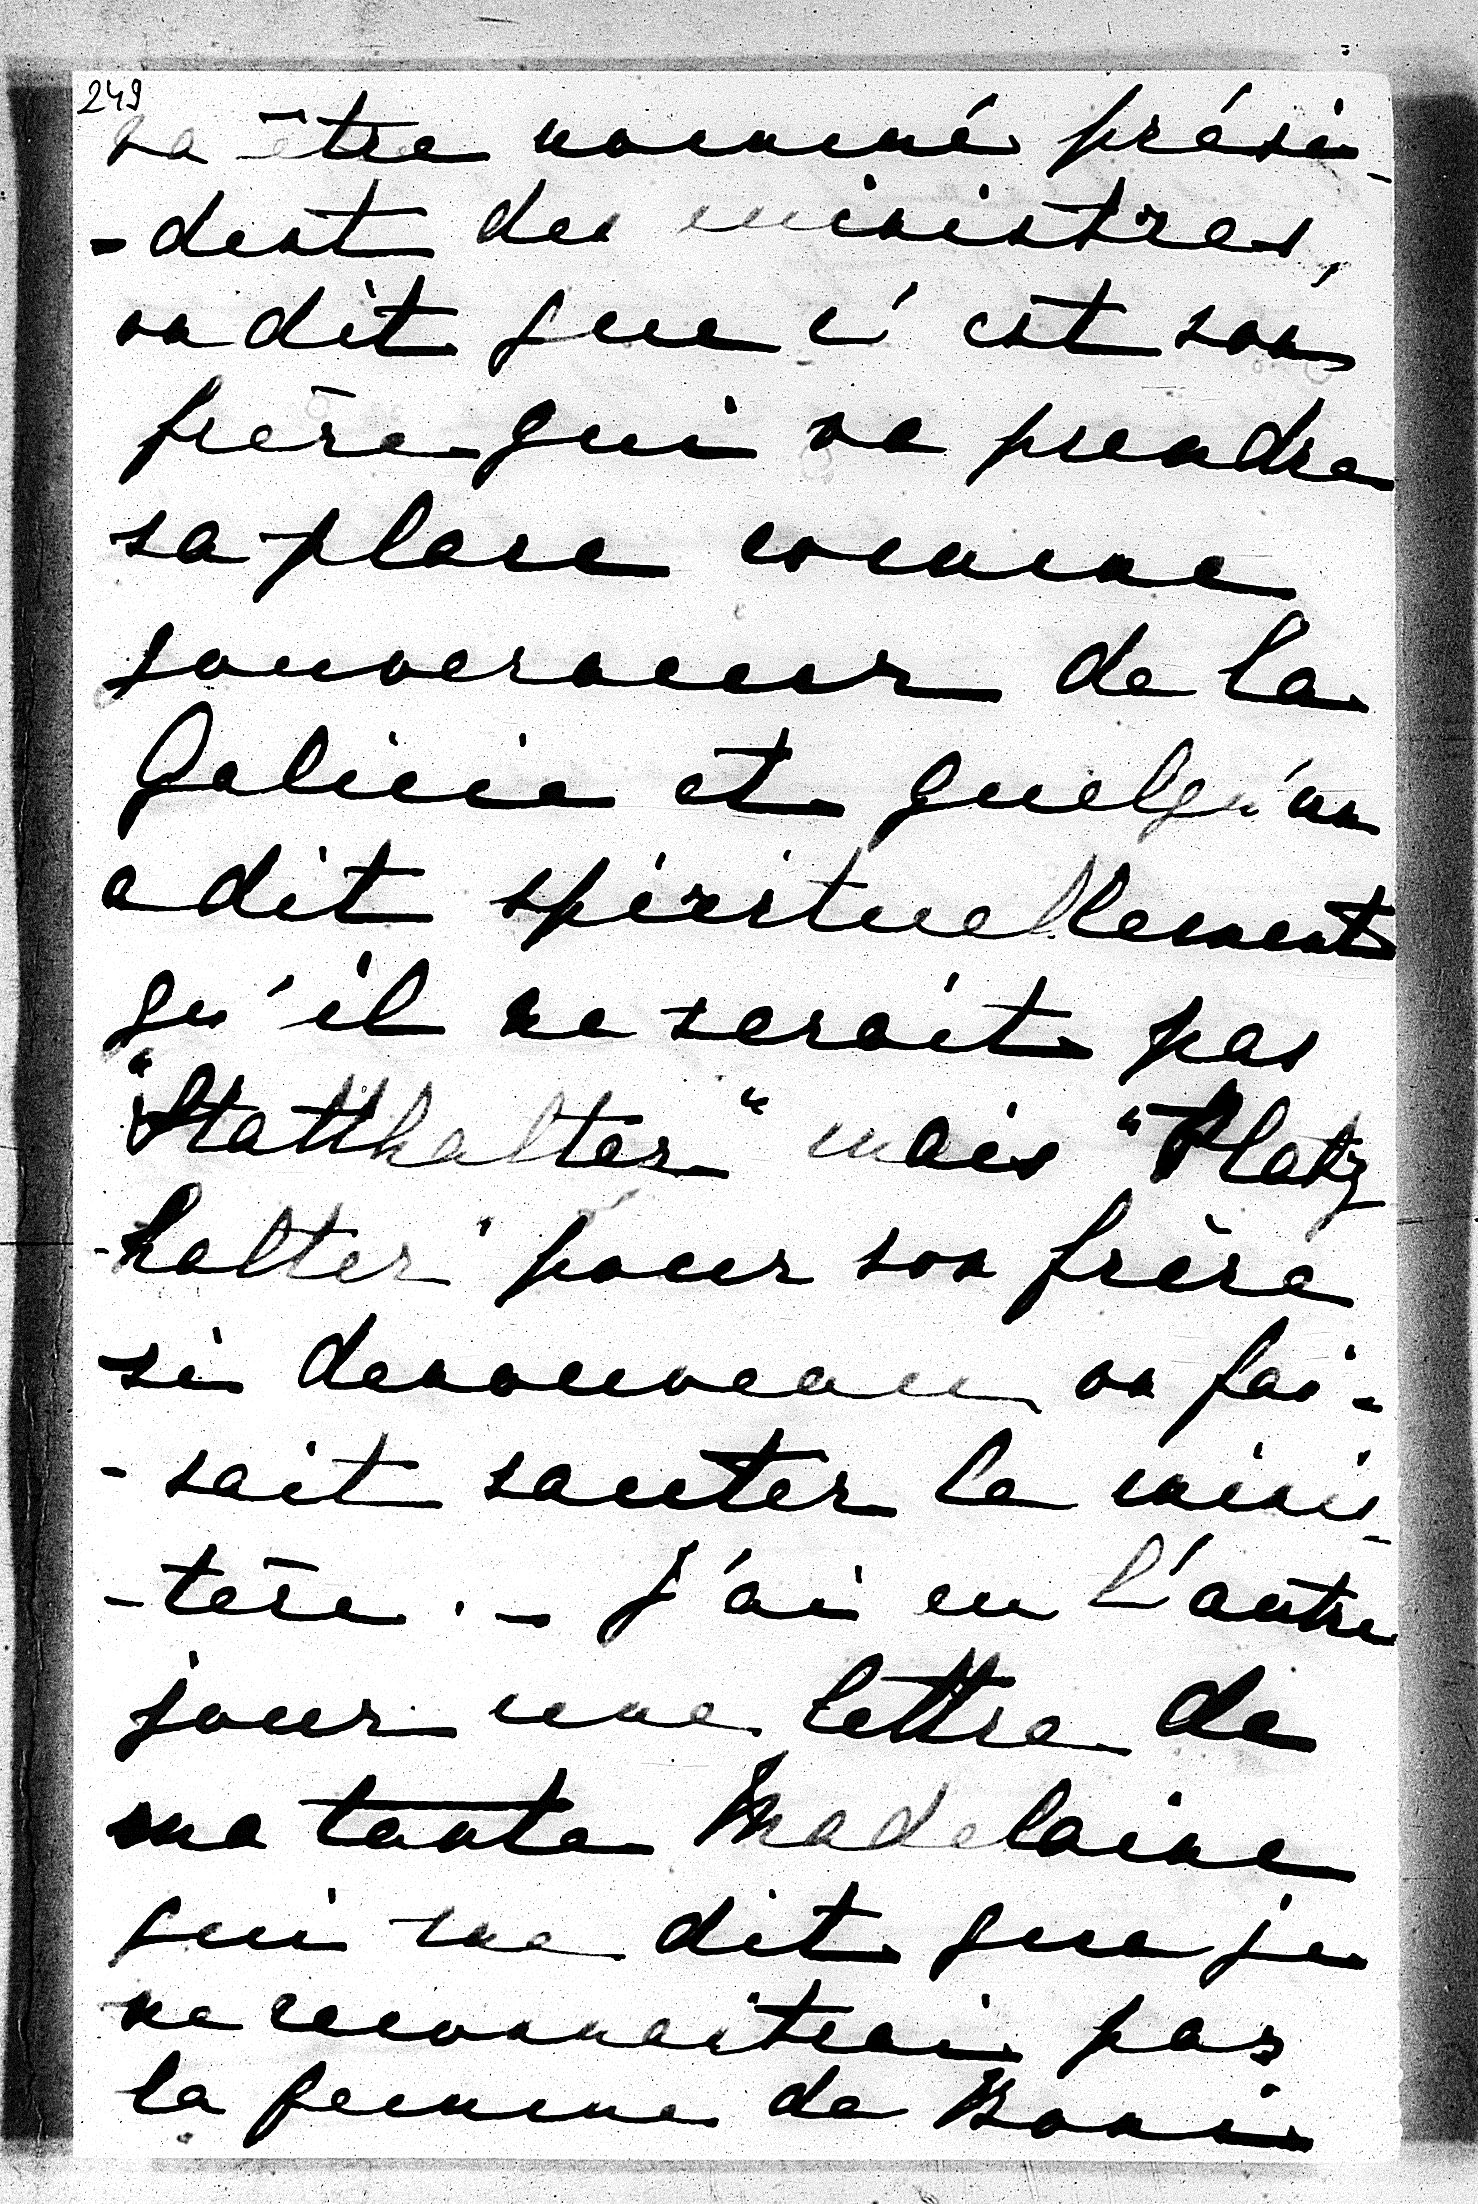 249
va être nommé prési-
-dent des ministres,
on dit que c'est son
frère qui va prendre
sa place comme
gouverneur de la
Galicie et quelqu'un
a dit spirituellement
qu'il ne serait pas
"Statthalter" mais "Platz
-halter" pour son frère
si denouveau on fai-
-sait sauter le minis-
-tère. - J'ai eu l'autre
jour une lettre de
ma tante Madelaine
qui me dit que je
ne reconnaitrai pas
la femme de Boni